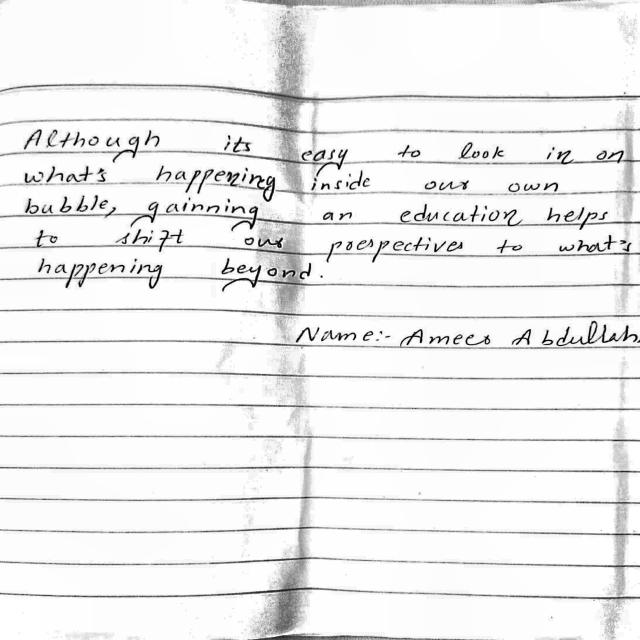 Although its easy to look in on
what's happening inside our own
bubble, gainning an education helps
to shift our poespectives to what's
happening beyond.
Name:- Ameer Abdullah